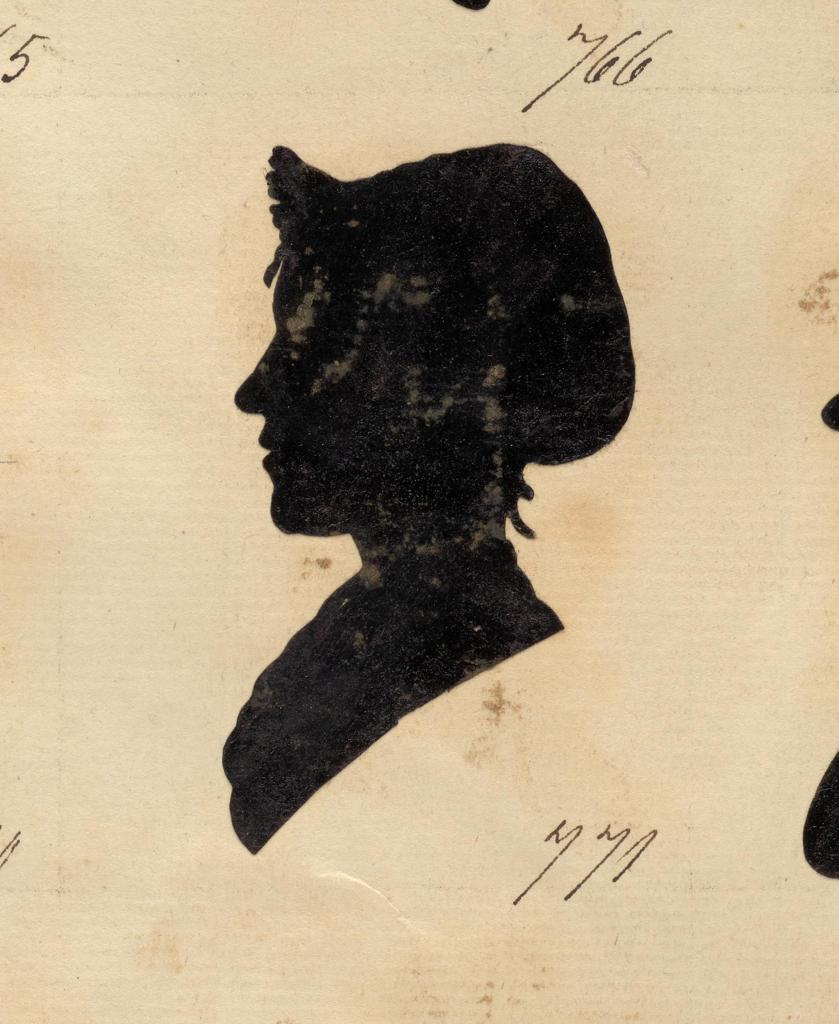 5 766
771